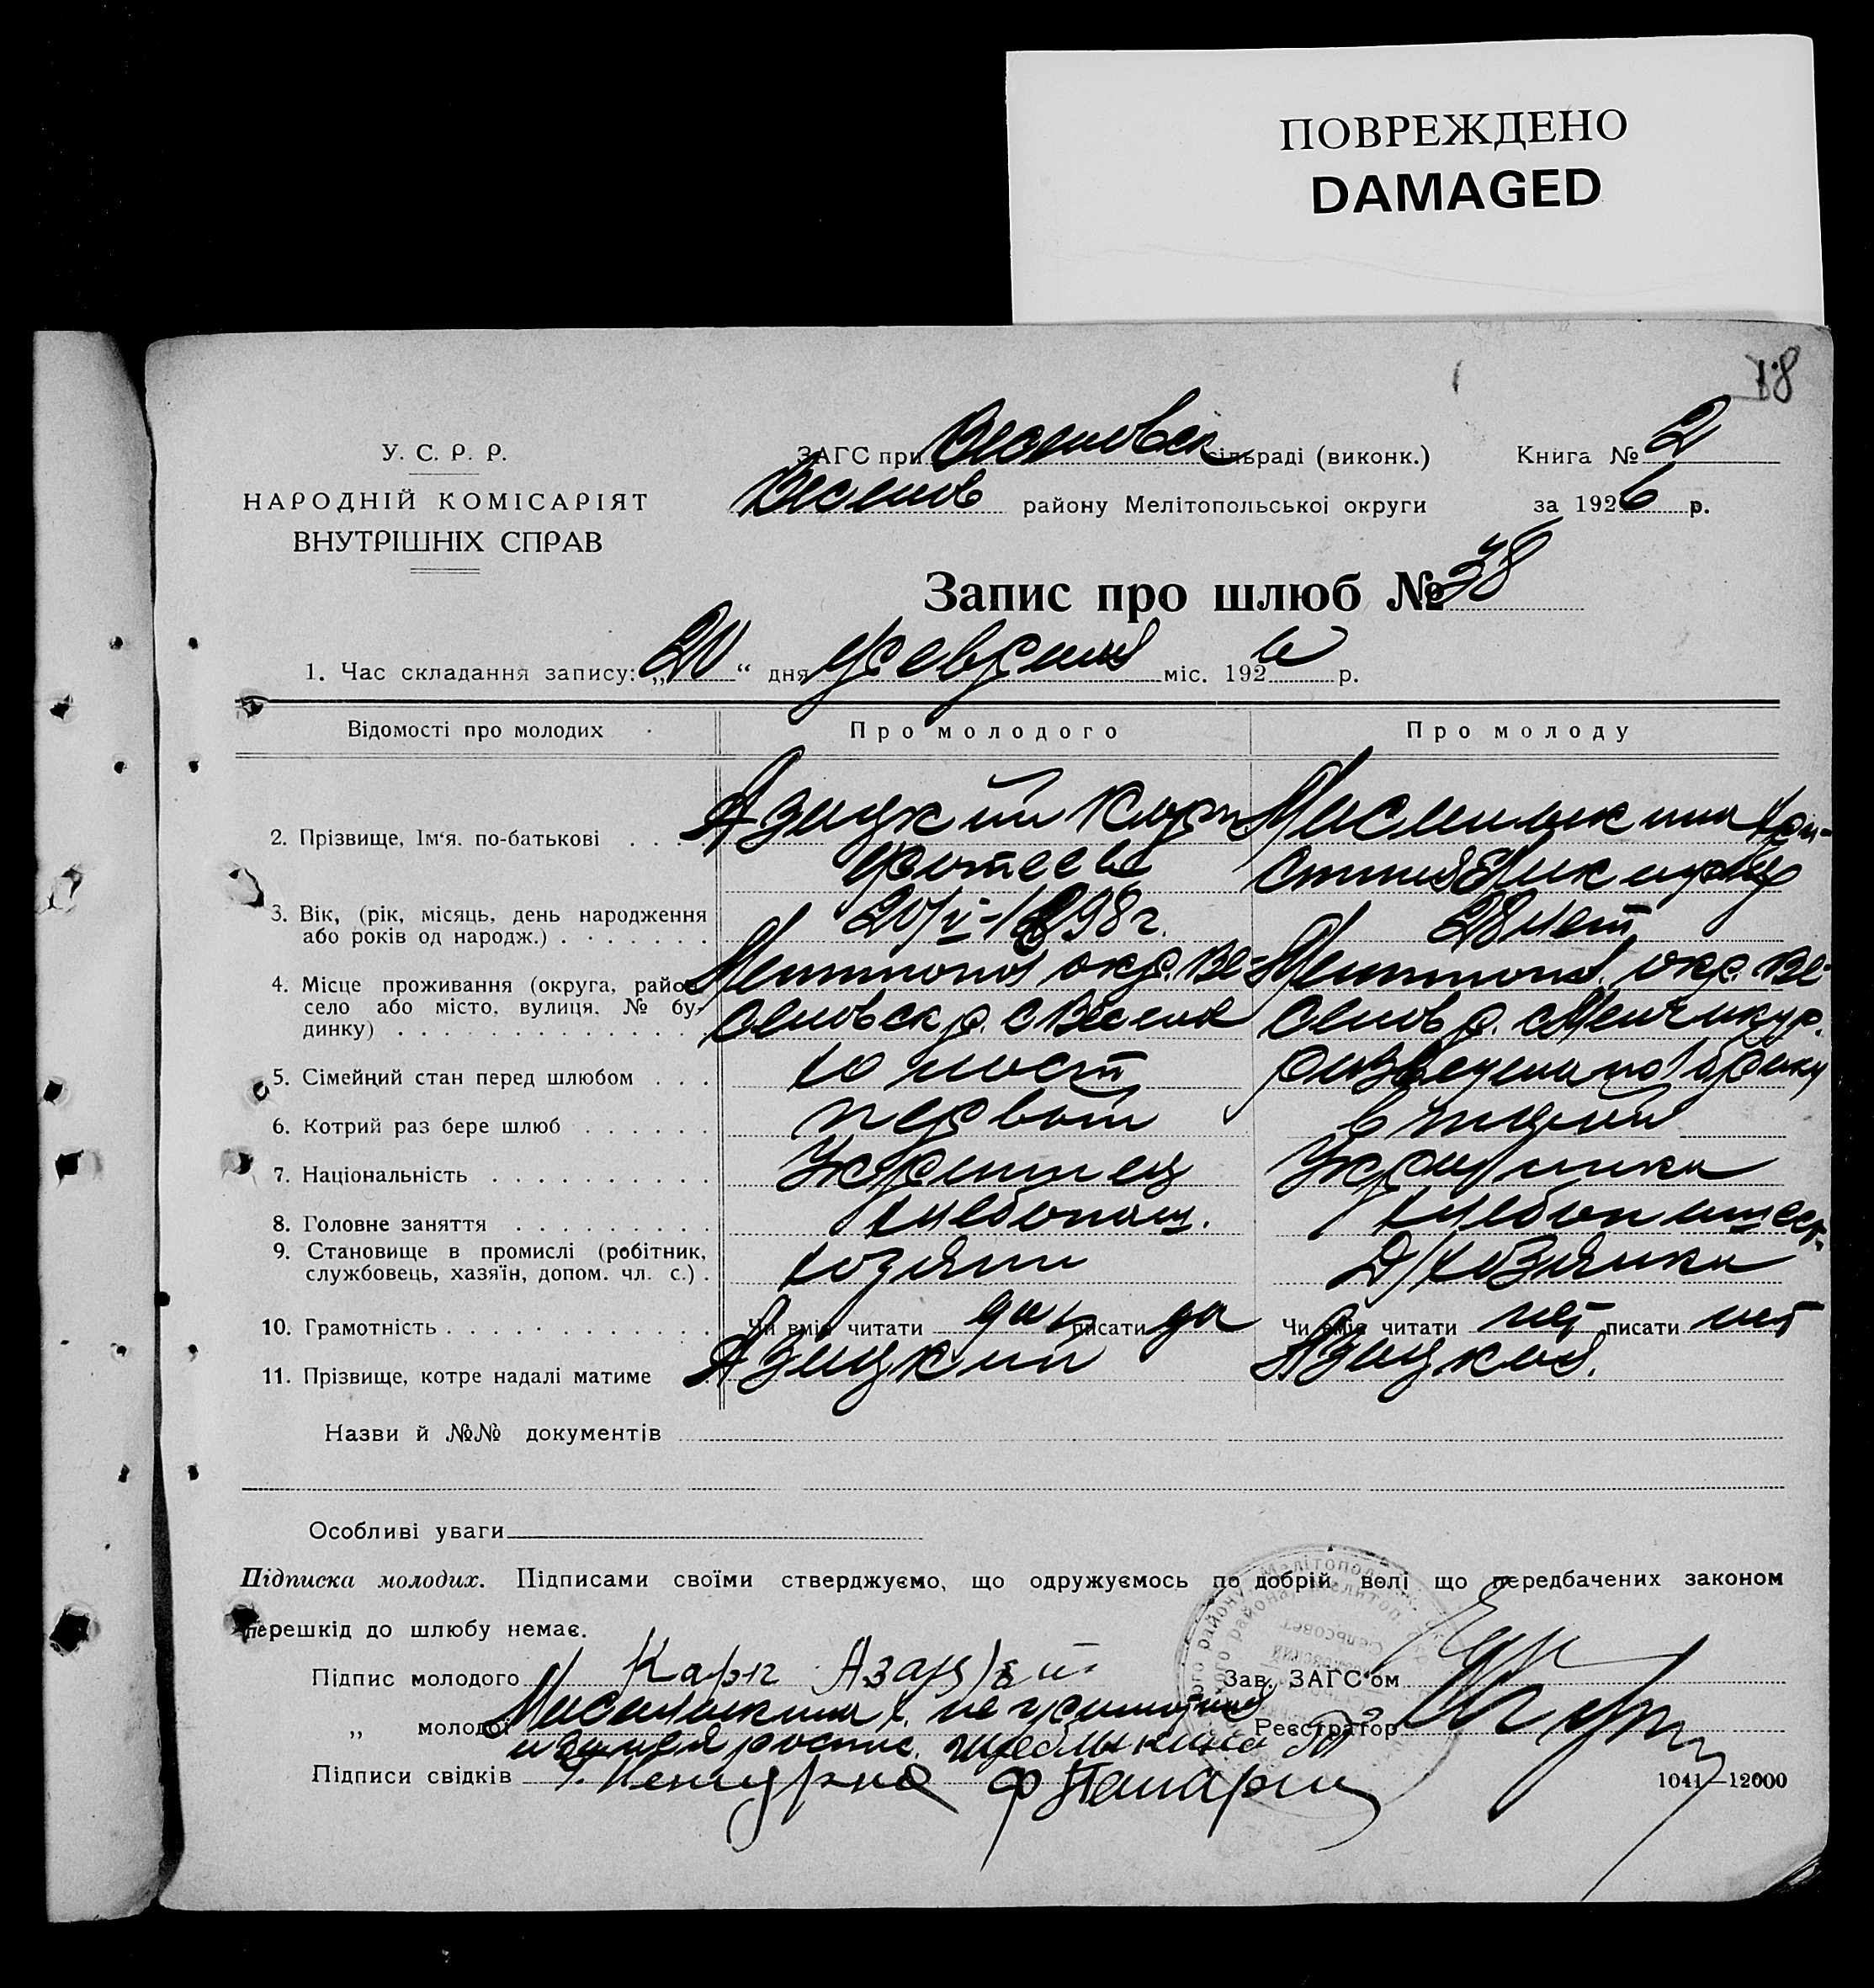 ПОВРЕЖДЕНО
DAMAGED
18
У. С. Р. Р.
НАРОДНІЙ КОМІСАРІЯТ
ВНУТРІШНІХ СПРАВ
ЗАГС при Веселовск сільраді (виконк.)
Веселов району Мелітопольської округи
Книга № 2
за 1926 р.
Запис про шлюб № 38
1. Час складання запису: „20“ дня февраля міс. 1926 р.
Відомості про молодих
Про молодого
Про молоду
2. Прізвище, Ім‘я. по-батькові
Азацкий Карп
Фотеев
Масалыкина Хри-
стина
3. Вік, (рік, місяць, день народження
або років од народж.)
20/V-1898 г.
28 лет
4. Місце проживання (округа, район,
село або місто, вулиця, № бу-
динку)
Мелитопол окр. Ве-
селовск р. с Веселое
Мелитопол. окр. Ве-
селов р. с Менчикур.
5. Сімейний стан перед шлюбом
холост
разведена по 1 браку
6. Котрий раз бере шлюб
первый
второй
7. Національність
Украинец
Украинка
8. Головне заняття
хлебопаш.
хлебопашест.
9. Становище в промислі (робітник,
службовець, хазяїн, допом. чл. с.)
хозяин
Д/хозяйка
10. Грамотність
Чи вміє читати да писати да
Чи вміє читати нет писати нет
11. Прізвище, котре надалі матиме
Азацкий
Азацкая.
Назви й №№ документів
Особливі уваги
Підписка молодих. Підписами своїми стверджуємо, що одружуємось по добрій волі що передбачених законом
перешкід до шлюбу немає.
Підпис молодого Карп Азацкий
Зав. ЗАГС'ом
„ молодої Масалыкина Х. неграмотная
Реєстратор
Підписи свідків
1041—12000